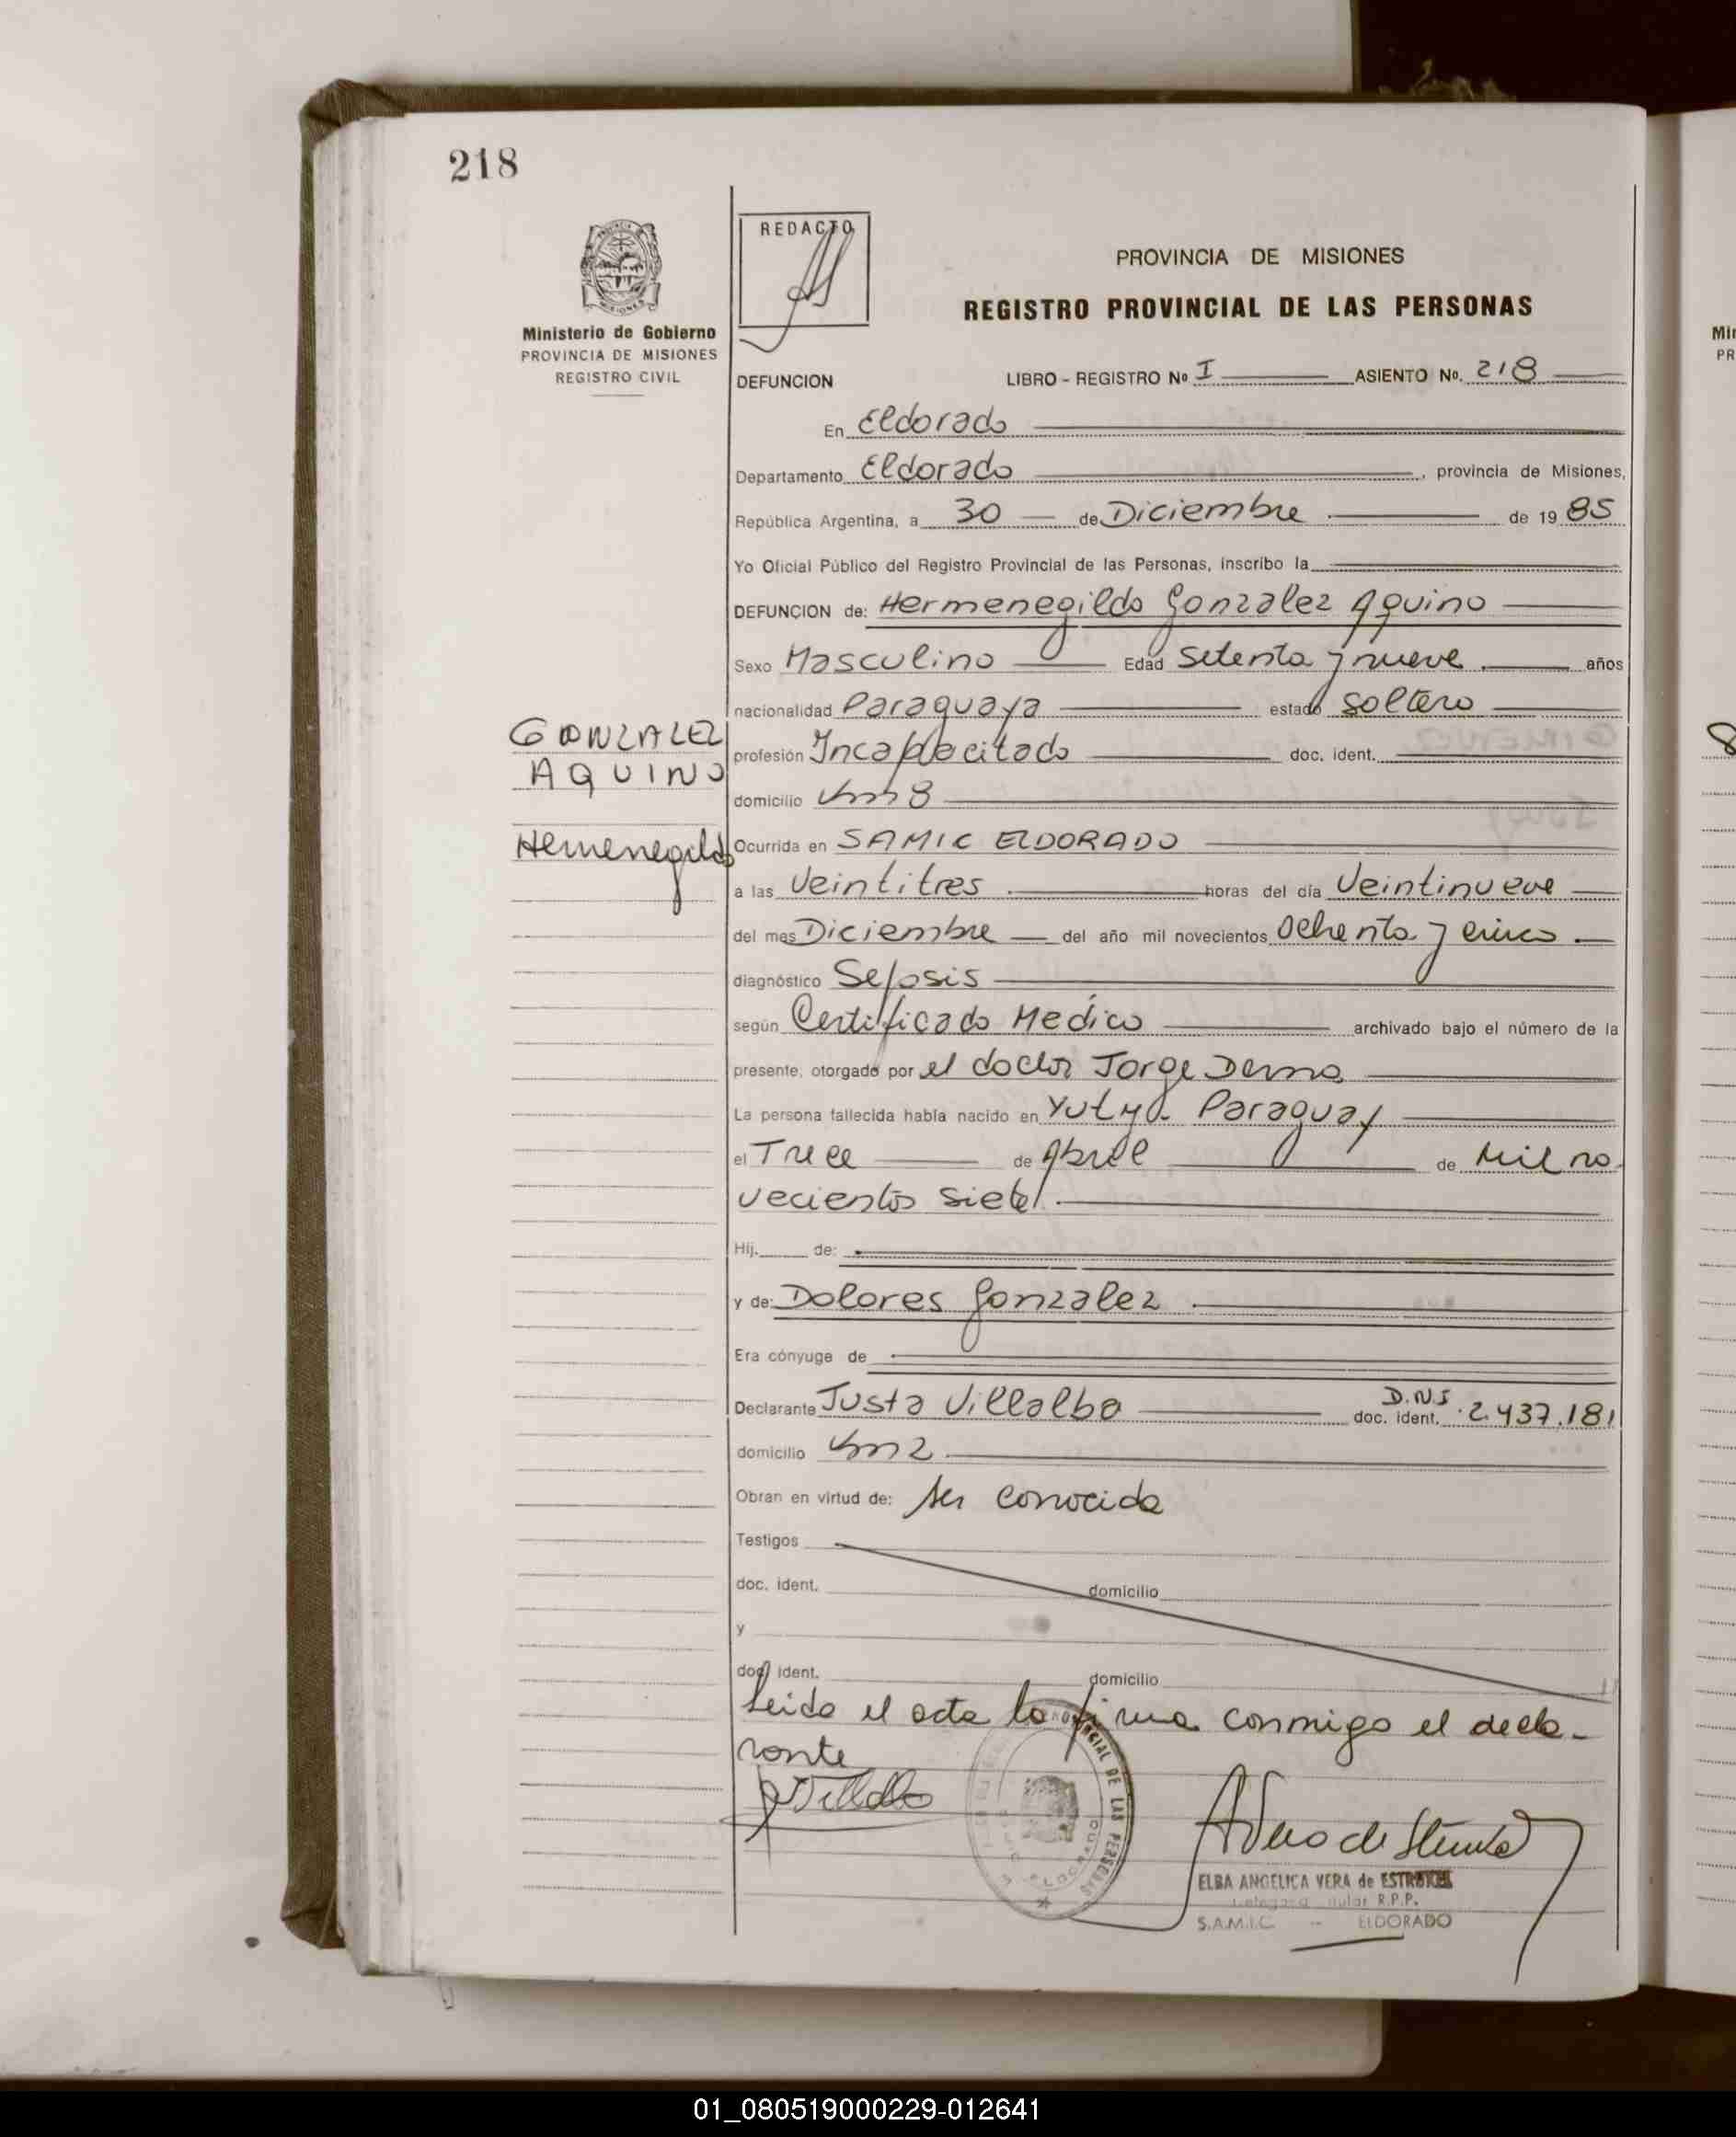 218
REDACTO
Ministerio de Gobierno
PROVINCIA DE MISIONES
REGISTRO CIVIL
PROVINCIA DE MISIONES
REGISTRO PROVINCIAL DE LAS PERSONAS
DEFUNCION LIBRO - REGISTRO Nº I ASIENTO No. 218
En Eldorado
Departamento Eldorado, provincia de Misiones,
República Argentina, a 30 de Diciembre de 1985
Yo Oficial Público del Registro Provincial de las Personas, inscribo la
DEFUNCION de: Hermenegildo Gonzalez Aquino
Sexo Masculino Edad Setenta y nueve años
nacionalidad Paraguaya estado Soltero
GONZALEZ
AQUINO
Hemenegildo
profesión Incapacitado doc. ident.
domicilio Km 8
Ocurrida en SAMIC ELDORADO
a las Veintitres horas del día Veintinueve
del mes Diciembre del año mil novecientos Ochenta y cinco
diagnóstico Sepsis
según Certificado Medico archivado bajo el número de la
presente, otorgado por el doctor Jorge
La persona fallecida había nacido en Paraguay
el Trece de Abril de Mil no
vecientos siete
Hij. de:
y de: Dolores Gonzalez
Era cónyuge de
Declarante Justa Villalba doc. ident. D.N.I 2.437.181
domicilio Km 2
Obran en virtud de: ser conocida
Testigos
doc. ident. domicilio
y
doc. ident. domicilio
Leida el acta la firma conmigo el decla-
rante
ELBA ANGELICA VERA de
R.P.P.
S.A.M.I.C. - ELDORADO
01_080519000229-012641